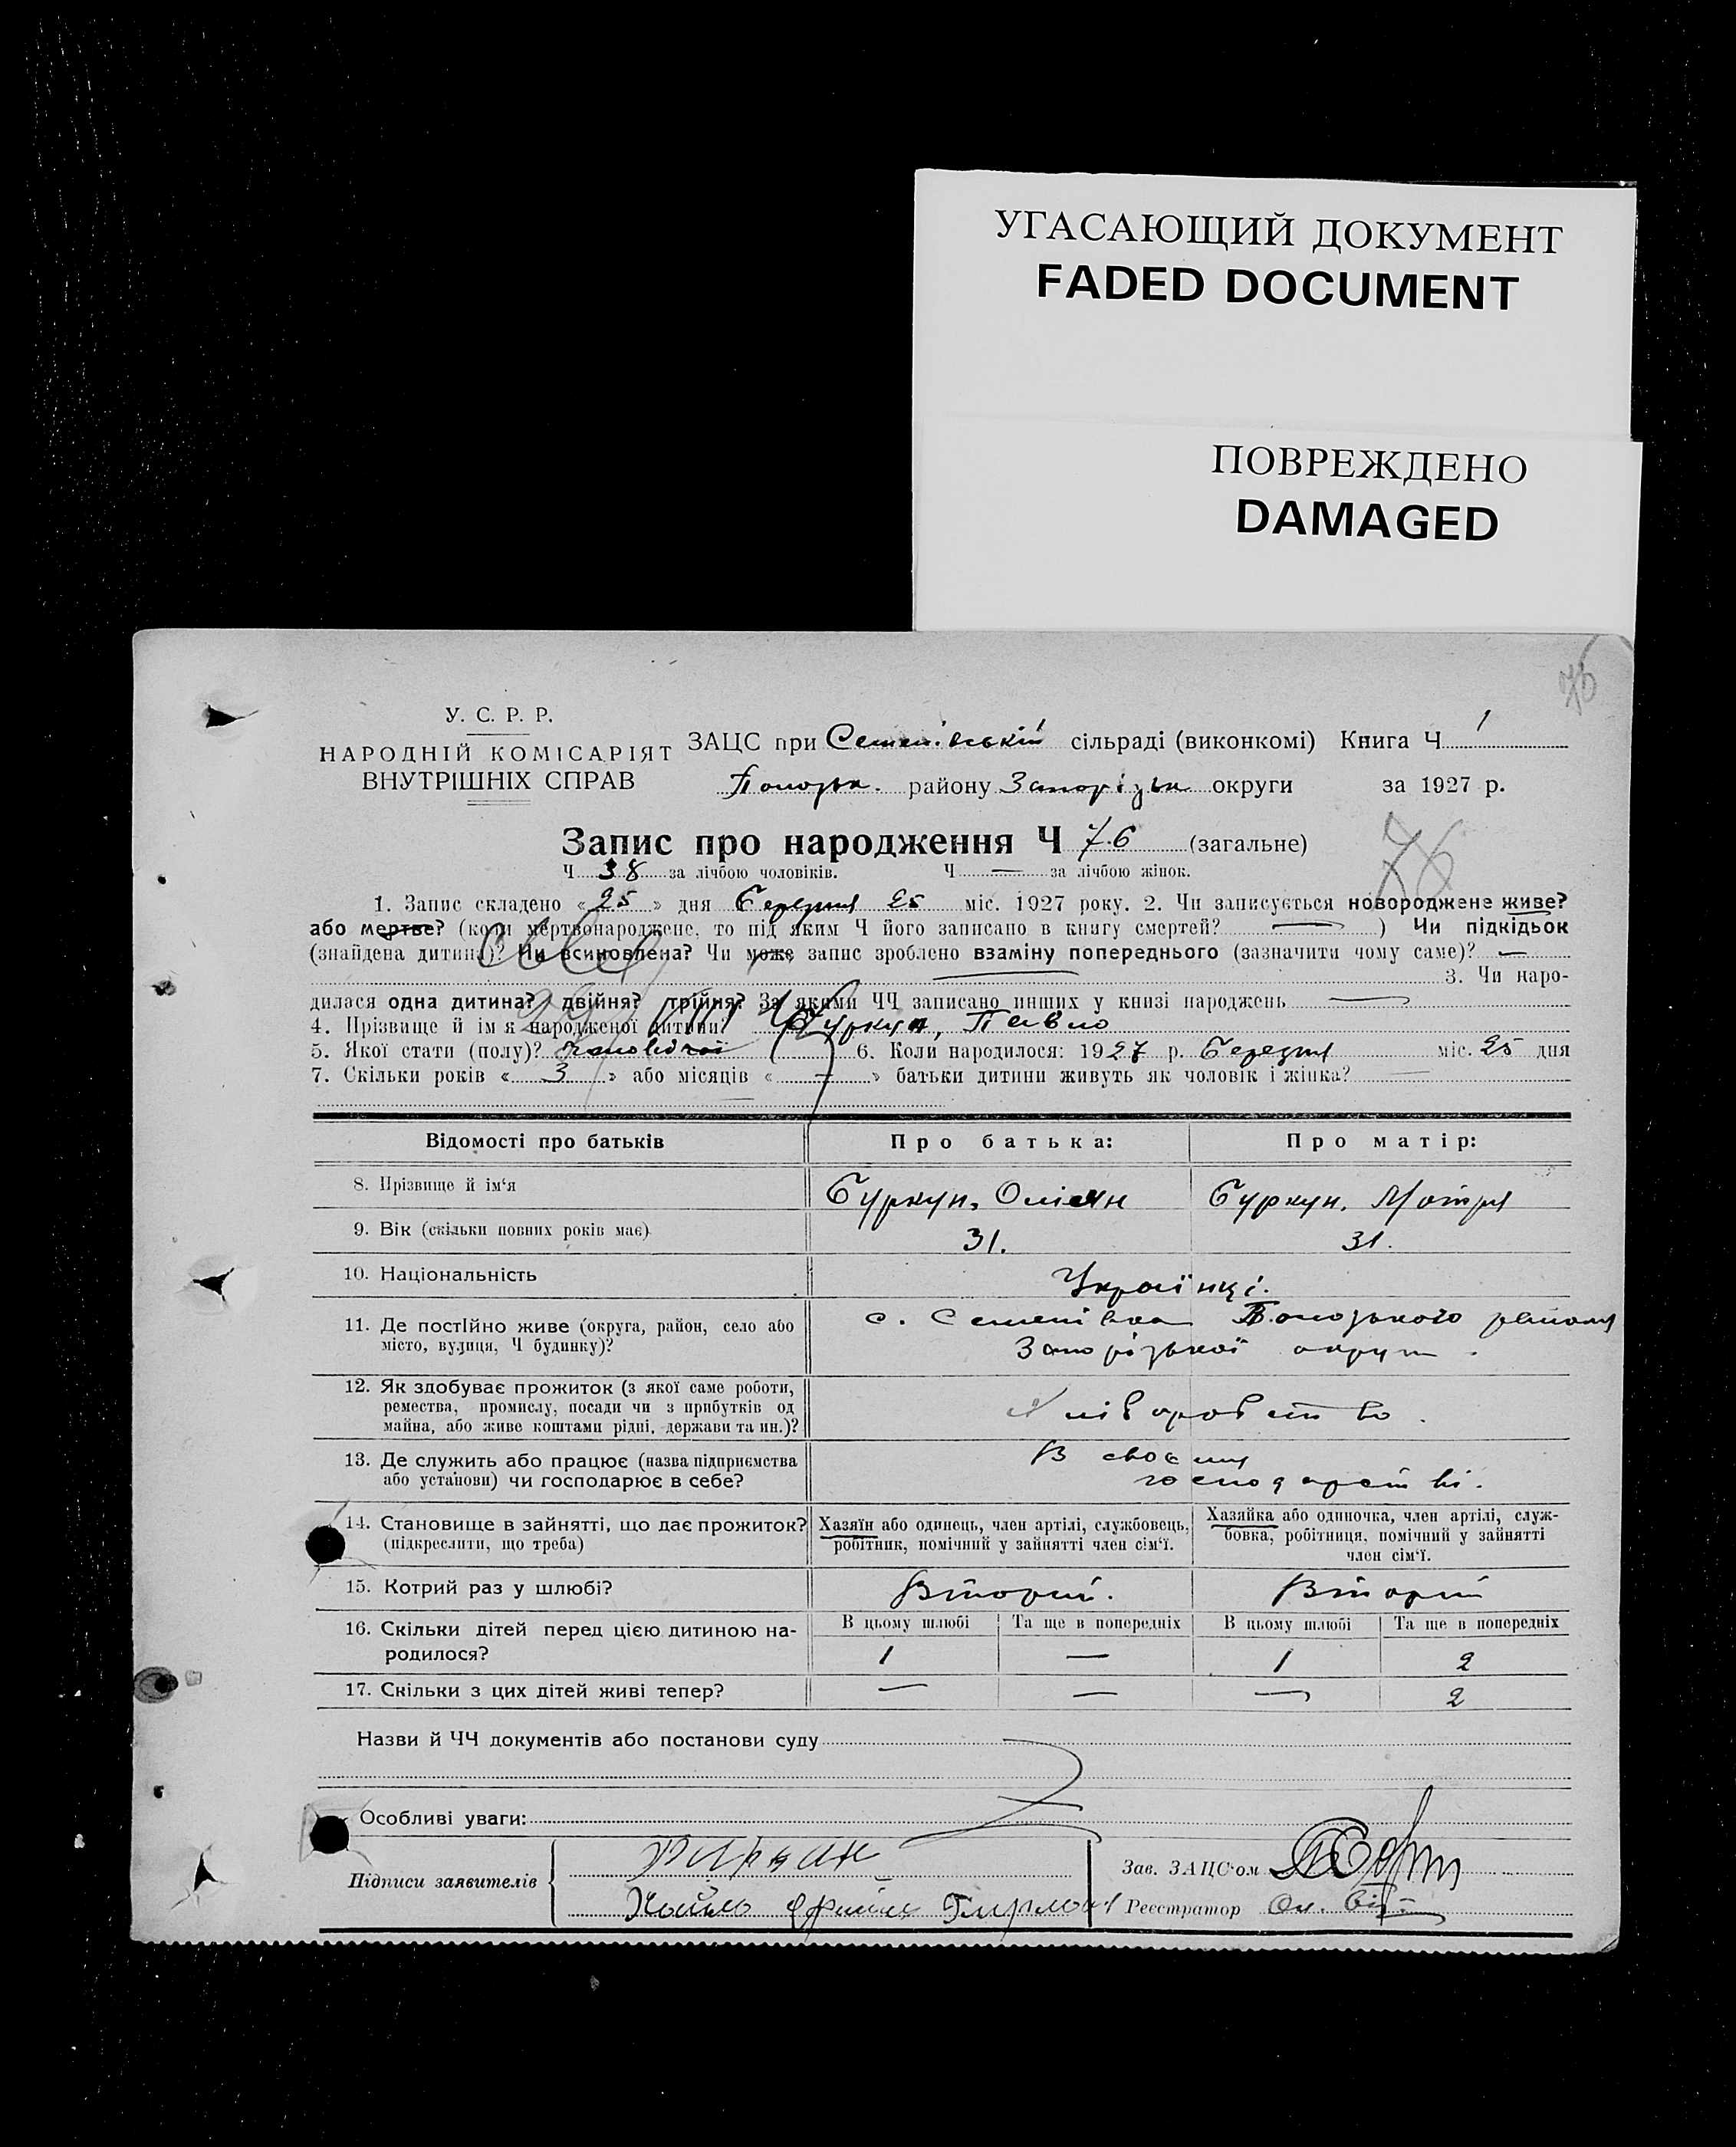 УГАСАЮЩИЙ ДОКУМЕНТ
FADED DOCUMENT
ПОВРЕЖДЕНО
DAMAGED
76
У. С. Р. Р.
НАРОДНІЙ КОМІСАРІЯТ
ВНУТРІШНІХ СПРАВ
ЗАЦС при Семенівській сільраді (виконкомі) Книга Ч 1
району Запорізьк округи за 1927 р.
Запис про народження Ч 76 (загальне)
76
Ч 38 за лічбою чоловіків. Ч — за лічбою жінок.
1. Запис складено « 25 » дня Березня 25 міс. 1927 року. 2. Чи записується новороджене живе?
або мертве? (коли мертвонароджене, то під яким Ч його записано в книгу смертей? — ) Чи підкідьок
(знайдена дитина)? Чи всиновлена? Чи може запис зроблено взаміну попереднього (зазначити чому саме)? —
3. Чи наро-
дилася одна дитина? двійня? трійня? За якими ЧЧ записано инших у книзі народжень —
4. Прізвище й ім'я народженої дитини? Буркун, Павло
5. Якої стати (полу)? чоловічої 6. Коли народилося: 1927 р. Березня міс. 25 дня
7. Скільки років « 3 » або місяців « — » батьки дитини живуть як чоловік і жінка? —
Відомості про батьків Про батька: Про матір:
8. Прізвище й ім'я Буркун, Оміян Буркун, Мотря
9. Вік (скільки повних років має) 31. 31.
10. Національність Українці.
11. Де постійно живе (округа, район, село або
місто, вулиця, Ч будинку)?
с. Семенівка району
Запорізької округи.
12. Як здобуває прожиток (з якої саме роботи,
ремества, промислу, посади чи з прибутків од
майна, або живе коштами рідні, держави та ин.)?
Хліборобство.
13. Де служить або працює (назва підприємства
або установи) чи господарює в себе?
В своєму
господарстві.
14. Становище в зайнятті, що дає прожиток?
(підкреслити, що треба)
Хазяїн або одинець, член артілі, службовець,
робітник, помічний у зайнятті член сім'ї.
Хазяйка або одиночка, член артілі, служ-
бовка, робітниця, помічний у зайнятті
член сім'ї.
15. Котрий раз у шлюбі? Вторий. Вторий
16. Скільки дітей перед цією дитиною на-
родилося?
В цьому шлюбі Та ще в попередніх В цьому шлюбі Та ще в попередніх
1 — 1 2
17. Скільки з цих дітей живі тепер? — — — 2
Назви й ЧЧ документів або постанови суду
Особливі уваги:
Підписи заявителів
Зав. ЗАЦС'ом
Реєстратор